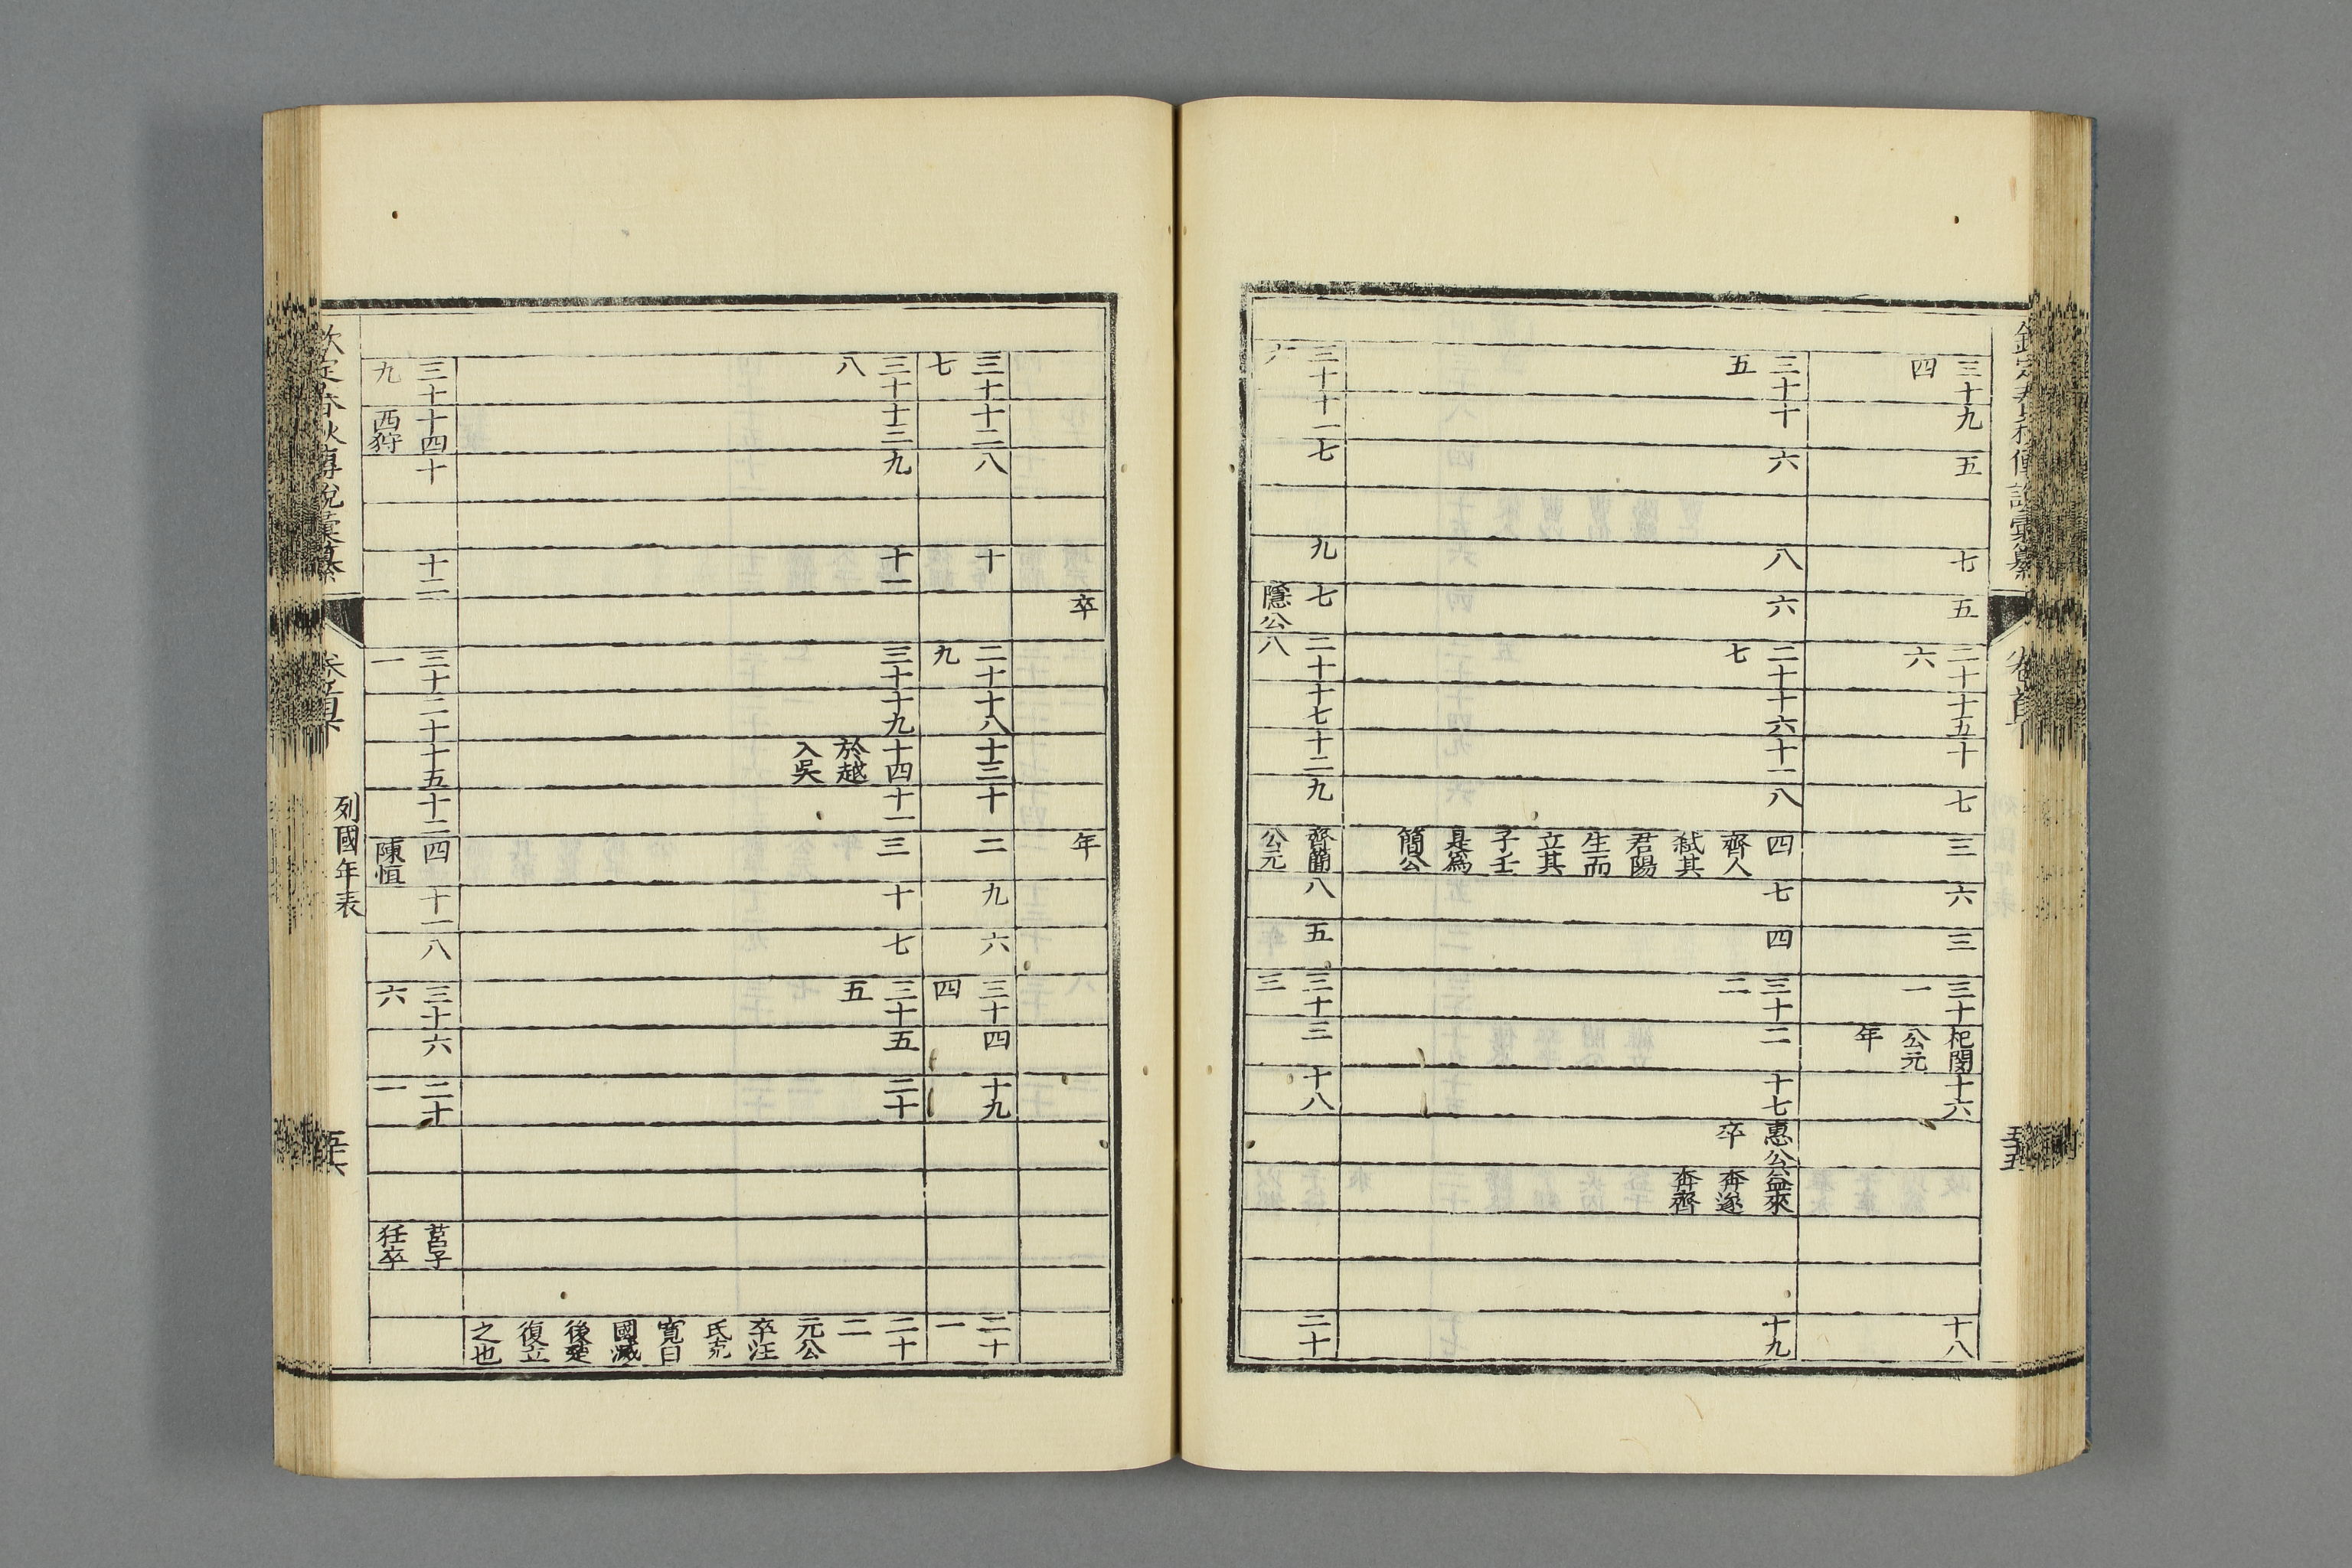 欽定春秋傳說彙纂 卷首 五十五
三十 九 五 七 五 二十 十五 十 七 三 六 三 三十 杞閔 十六 十八
四 六 一 公元
年
三十 十 六 八 六 二十 十六 十一 八 四 七 四 三十 二 十七 惠公 益來 十九
五 七 齊人 二 卒 奔遂
弑其 奔齊
君陽
生而
立其
子壬
是爲
簡公
三十 十一 七 九 七 二十 十七 十二 九 齊簡 八 五 三十 三 十八 二十
六 隱公 八 公元 三
卒 年
三十 十二 八 十 二十 十八 十三 十 二 九 六 三十 四 十九 二十
七 九 四 一
三十 十三 九 十一 三十 十九 十四 十一 三 十 七 三十 五 二十 二十
八 於越 五 二
入吳 元公
卒汪
氏克
寬曰
國滅
後楚
復立
之也
三十 十四 十 十二 三十 二十 十五 十二 四 十一 八 三十 六 二十 莒子
九 西狩 一 陳恒 六 一 狂卒
欽定春秋傳說彙纂 卷首 列國年表 五十六